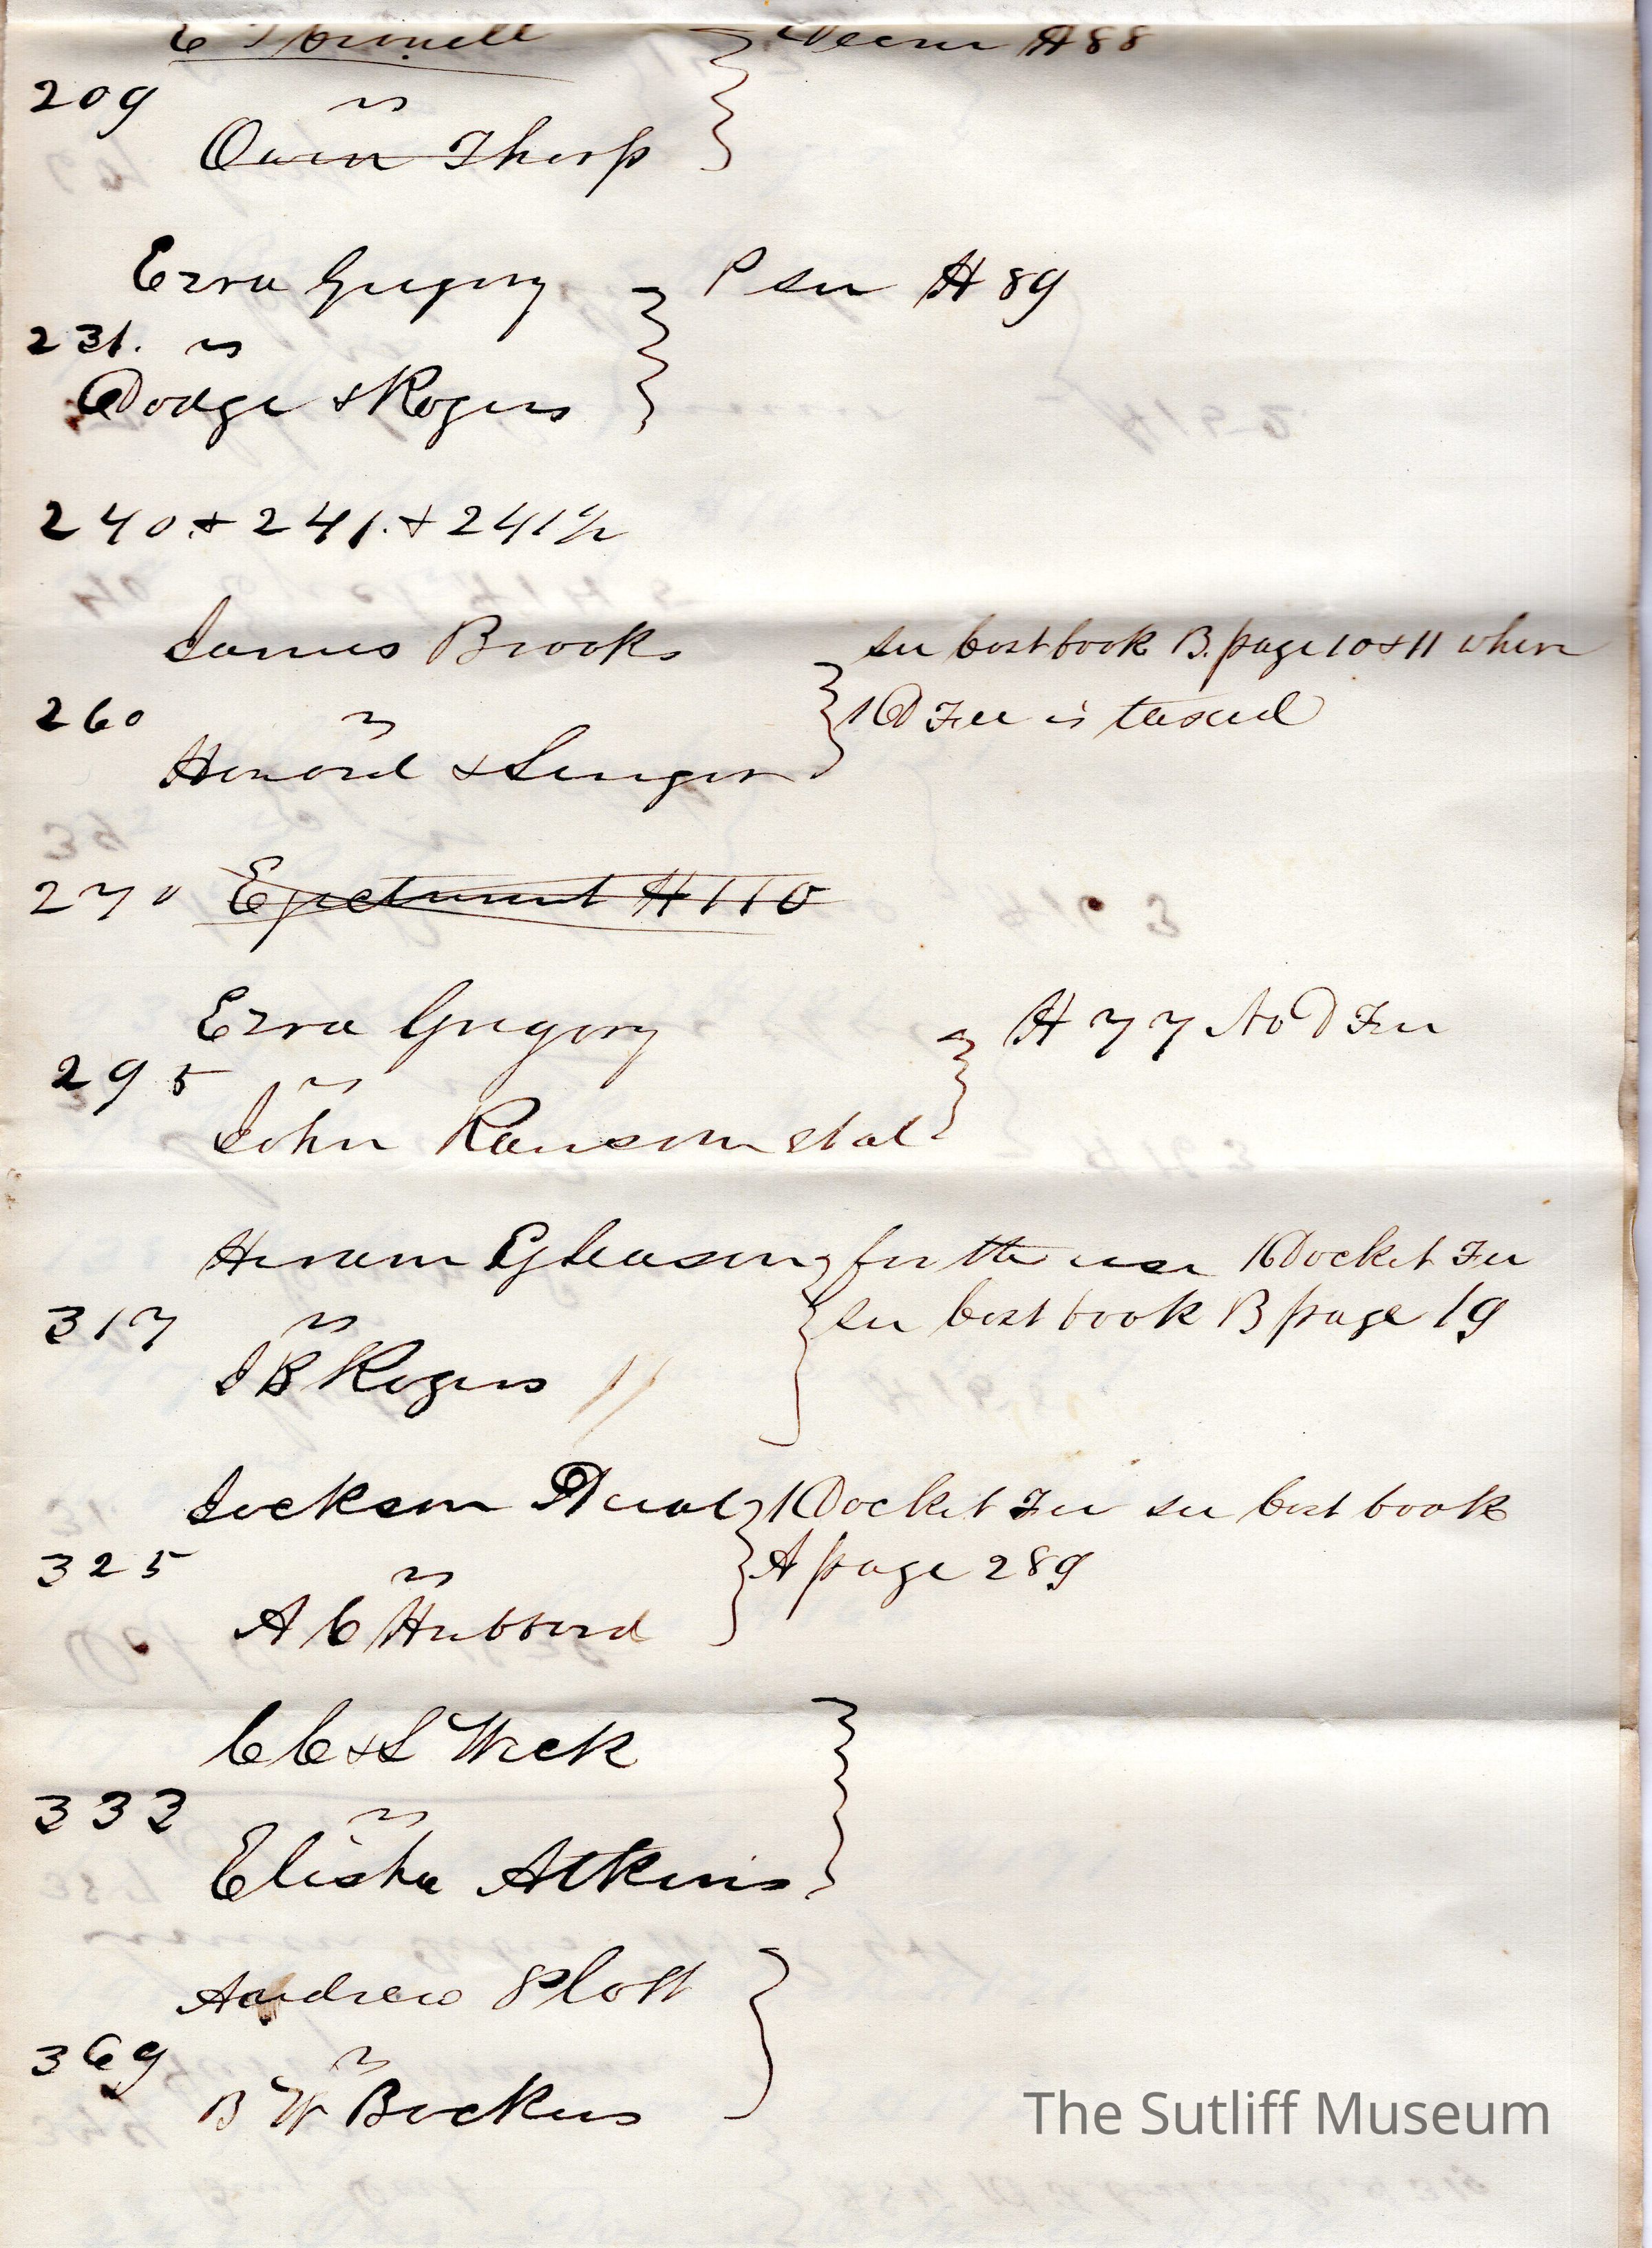 209
vs
Owen Thorp
Ezra Gregory } P see H 89
231. vs
Dodge & Rogers
240. & 241. & 241 1/2
James Brooks } see Cost book B. page 10 & 11 where
260 vs 1 D Fee is taxed
Howard &
270 Ejectment H 110
Ezra Gregory } H 77 No D Fee
295 vs
John Ransom et al
Hiram Gleason } for the use 1 Docket Fee
317 vs see Cost book B page 19
I B Rogers
Jackson } 1 Docket Fee see Cost book
325 vs A page 289
A C Hubbard
C C & L Wick
333 vs
Elisha Atkins
Andrew Plott
369 vs
B W Backus
The Sutliff Museum